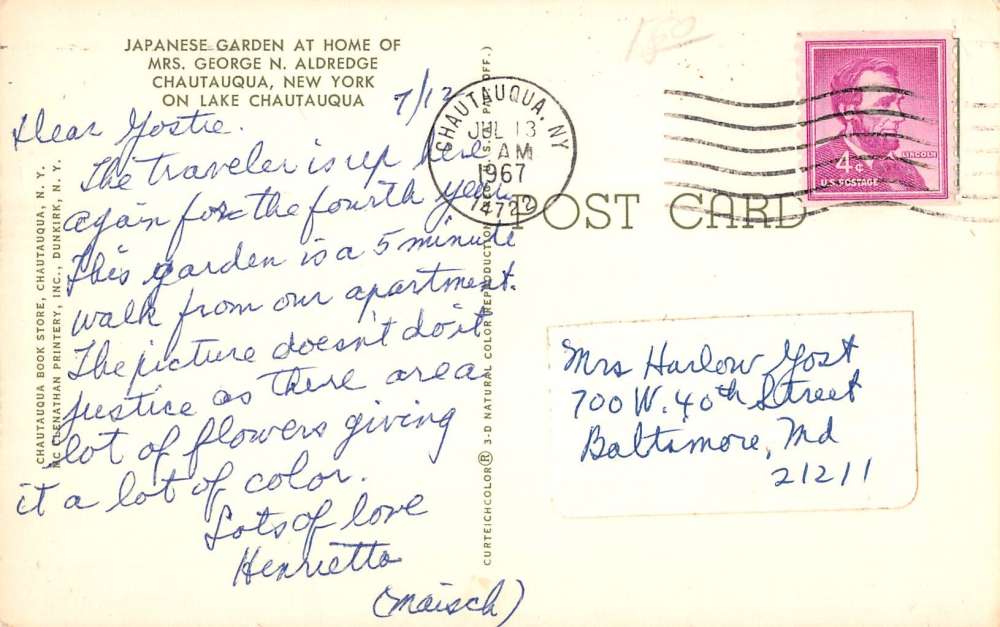 JAPANESE GARDEN AT HOME OF
MRS. GEORGE N. ALDREDGE
CHAUTAUQUA, NEW YORK
ON LAKE CHAUTAUQUA
7/12
Dear Gostie.
The traveler is up here
again for the fourth year.
This garden is a 5 minute
walk from our apartment.
The picture doesn't do it
justice as there are a
lot of flowers giving
it a lot of color.
Lots of love
Henrietta
(Maisch)
CHAUTAUQUA BOOK STORE, CHAUTAUQUA, N. Y.
MC CLENATHAN PRINTERY, INC., DUNKIRK, N. Y.
CURTEICHCOLOR® 3-D NATURAL COLOR REPRODUCTION U.S. PAT. OFF.)
CHAUTAUQUA, NY
JUL 13
AM
1967
14722
POST CARD
LINCOLN
4¢
U.S. POSTAGE
Mrs Harlow Gost
700 W. 40th Street
Baltimore, Md
21211